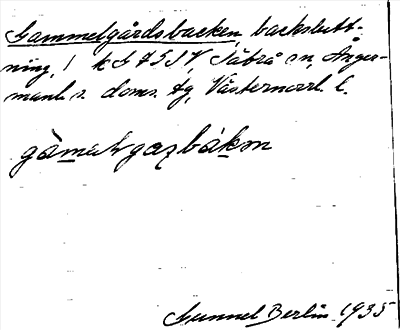 Gammelgårdsbacken, backslutt-
ning, 1 k S 75 SV, Säbrå sn, Ånger-
manl. s. doms. tg, Västernorrl. l.
Gunnel Berlin 1935